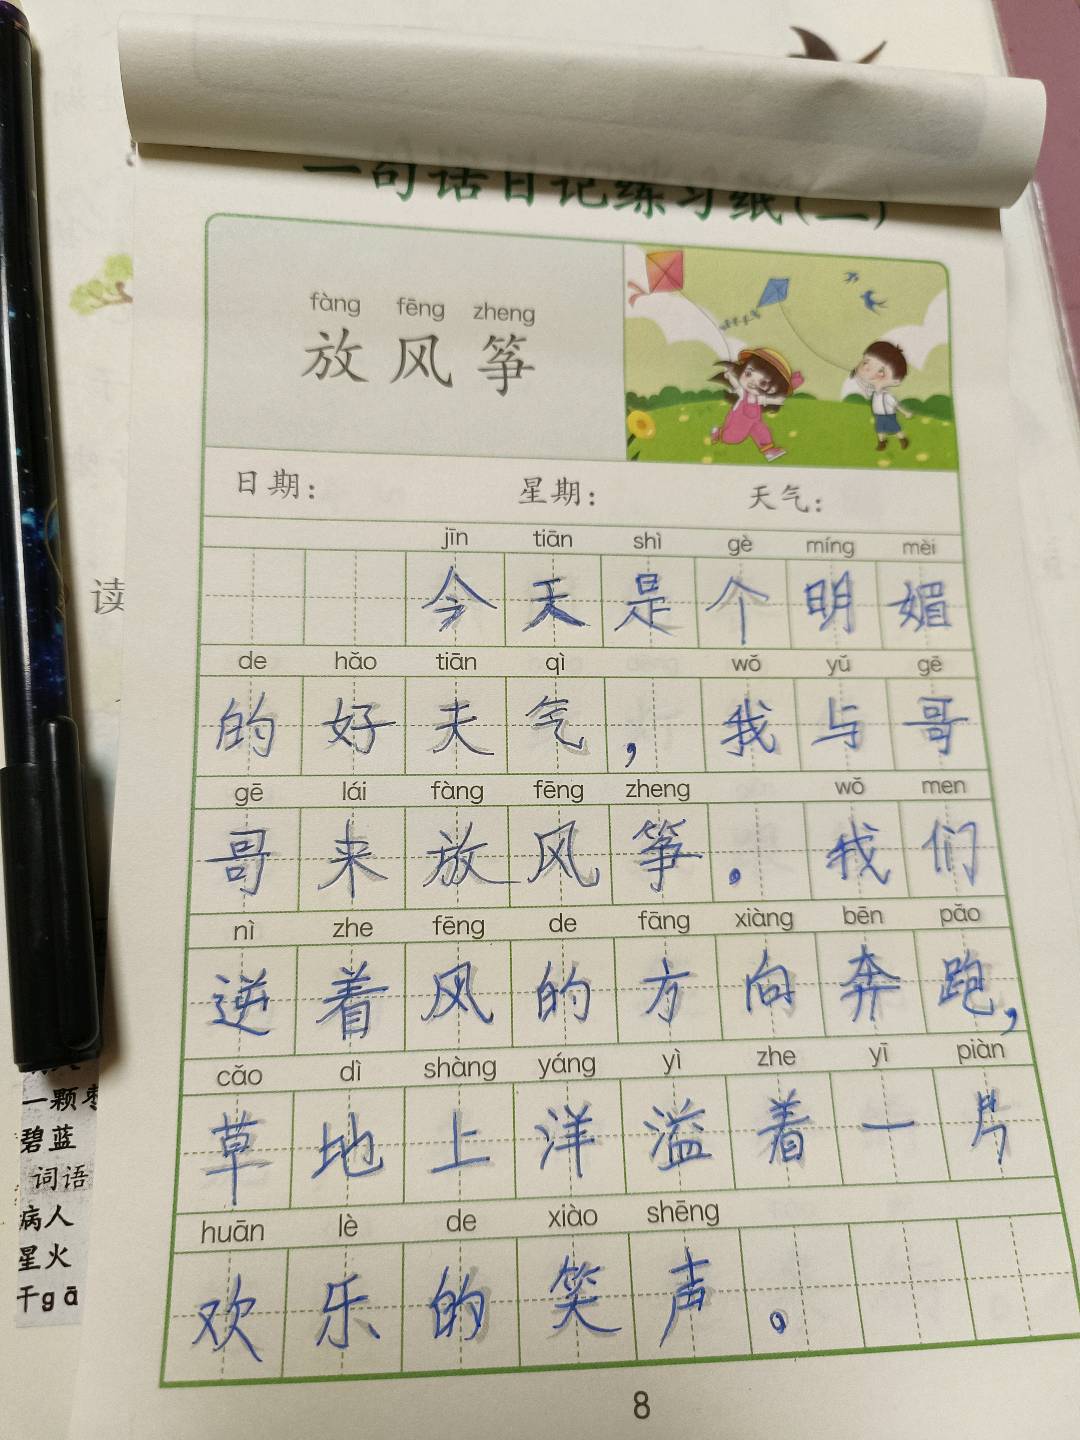 一句话日记练习纸(二)
fàng fēng zheng
放风筝
日期： 星期： 天气：
jīn tiān shì gè míng mèi
今天是个明媚
de hǎo tiān qì wǒ yǔ gē
的好天气，我与哥
gē lái fàng fēng zheng wǒ men
哥来放风筝。我们
nì zhe fēng de fāng xiàng bēn pǎo
逆着风的方向奔跑，
cǎo dì shàng yáng yì zhe yī piàn
草地上洋溢着一片
huān lè de xiào shēng
欢乐的笑声。
8
读
一颗枣
碧蓝
词语
病人
星火
干gā